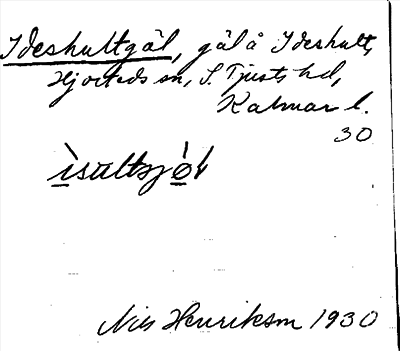 Ideshultgöl, göl å Ideshult,
Hjorteds sn, S. Tjusts hd,
Kalmar l.
30
ìsultsjö̀l
Nils Henriksson 1930